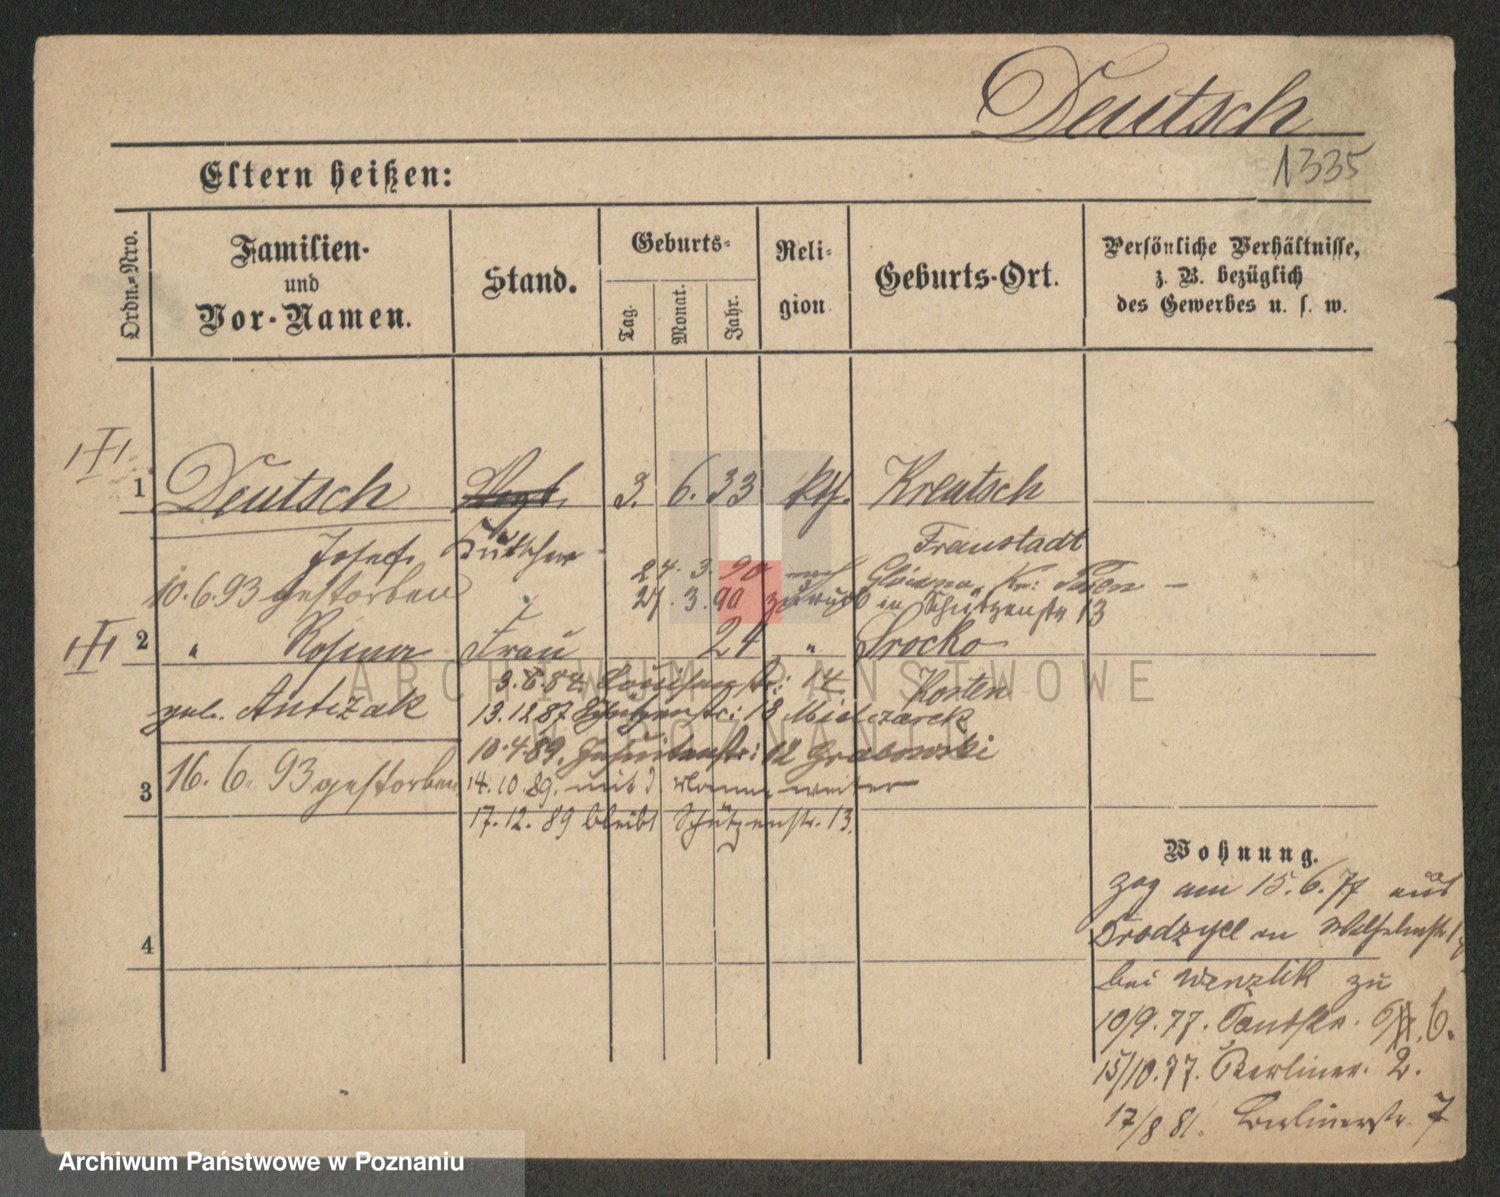 Deutsch
1335
Eltern heißen:
Ordn.-Nro.
Familien- und Vor-Namen.
Stand.
Geburts-
Tag.
Monat.
Jahr.
Reli-
gion
Geburts-Ort.
Persönliche Verhältnisse,
z. B. bezüglich
des Gewerbes u. s. w.
III
1 Deutsch Vogt 3. 6. 33 kth. Kreutsch
Josef Kutscher Fraustadt
24. 3. 90 nach Glowno, Kr: Posen
10. 6. 93 gestorben 27. 3. 90 zurück in Schützenstr 13
III
2 " Rosina Frau 24 " Srocko
3. 6. 84. 14. Kosten
geb. Antczak 13. 12 87 Schützenstr: 13 Mielczarek
10. 4. 89. Jesuitenstr: 12 Grabowski
3 16. 6. 93 gestorben 14. 10. 89. mit d. Mann weiter
17. 12. 89 bleibt Schützenstr. 13.
Wohnung.
4
zog am 15. 6. 77 aus
in Wilhelmstr 17
bei zu
10/9. 77. 6.
15/10. 77. Berliner. 2.
17/8 81. Berlinerstr. 7
ARCHIWUM PAŃSTWOWE
W POZNANIU
Archiwum Państwowe w Poznaniu